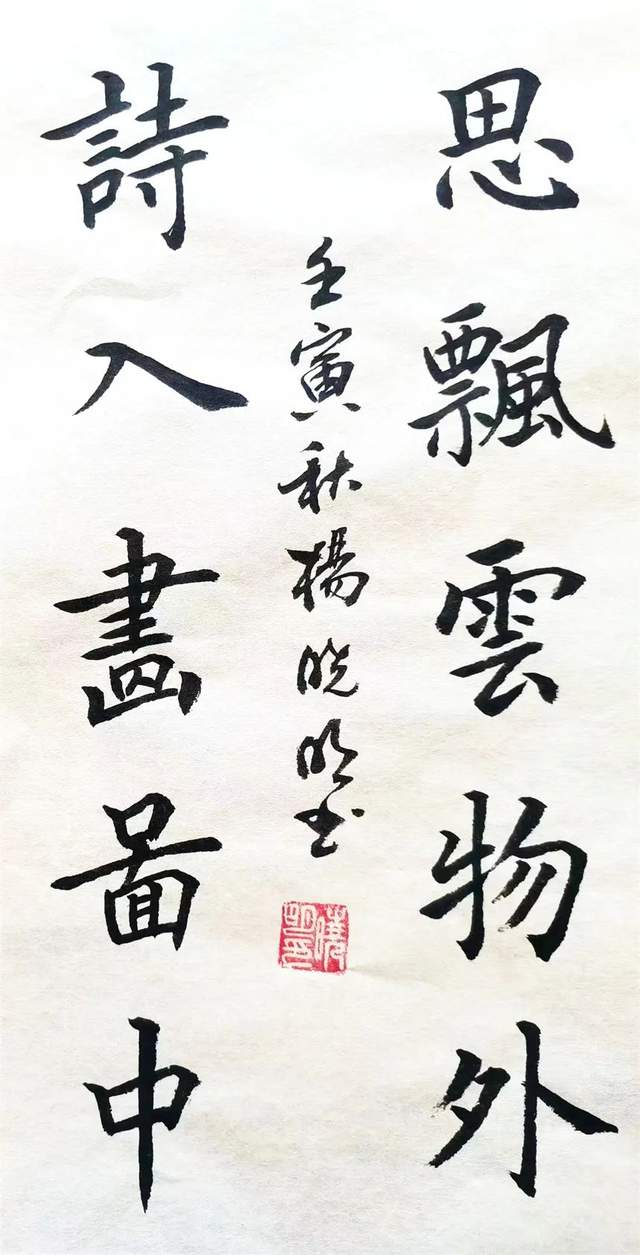 思飄雲物外
詩入畫啚中
壬寅秋楊曉明書